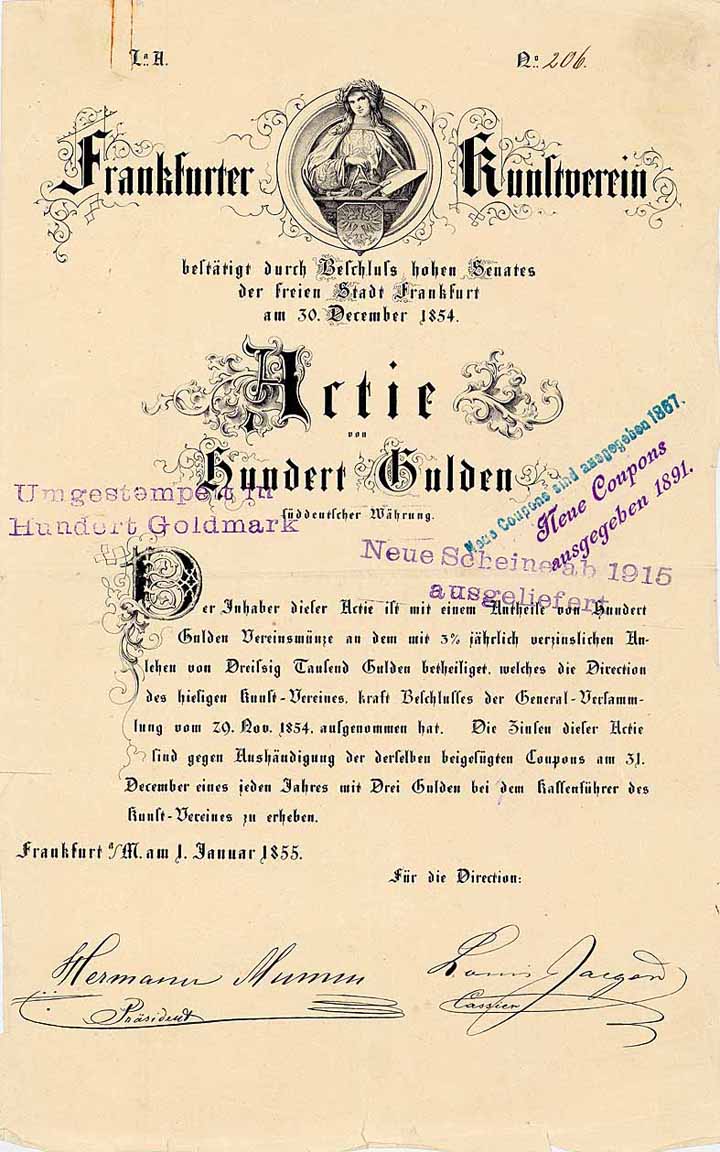 Lª: A.
Nº: 206.
Frankfurter Kunstverein
bestätigt durch Beschluss hohen Senates
der freien Stadt Frankfurt
am 30. December 1854.
Actie
von
Hundert Gulden
süddeutscher Währung.
Umgestempelt in
Hundert Goldmark
Neue Coupons sind ausgegeben 1867.
Neue Coupons
ausgegeben 1891.
Neue Scheine ab 1915
ausgeliefert
Der Inhaber dieser Actie ist mit einem Antheile von Hundert
Gulden Vereinsmünze an dem mit 3% jährlich verzinslichen An-
lehen von Dreissig Tausend Gulden betheiliget, welches die Direction
des hiesigen Kunst-Vereines, kraft Beschlusses der General-Versamm-
lung vom 29. Nov. 1854, aufgenommen hat. Die Zinsen dieser Actie
sind gegen Aushändigung der derselben beigefügten Coupons am 31.
December eines jeden Jahres mit Drei Gulden bei dem Kassenführer des
Kunst-Vereines zu erheben.
Frankfurt a/M. am 1. Januar 1855.
Für die Direction:
Hermann Mumm
Präsident
Louis
Cassier